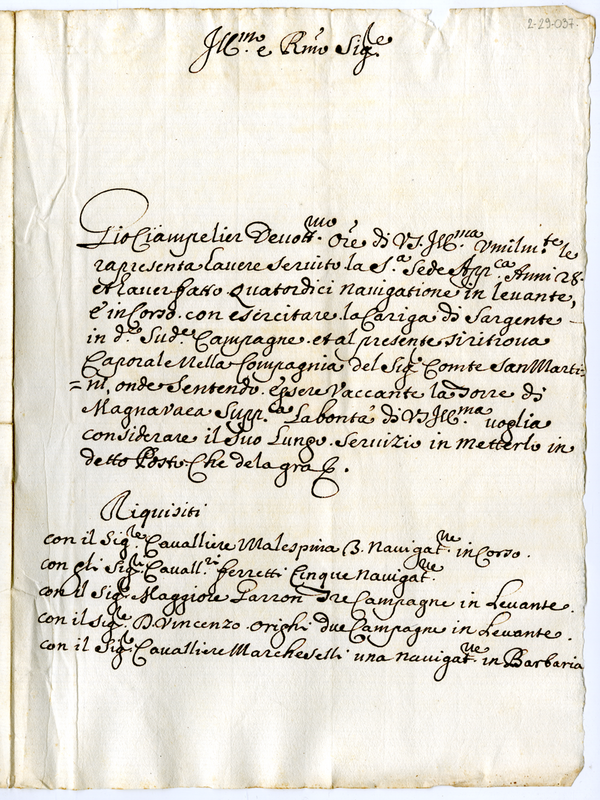 2-29-037.
Ill.mo e Rmo Sig.re
Gio Ciampelier Devott.mo Ore di VS. Ill.ma Umilm.te le
rapresenta lavere servito la S.a Sede App.ca Anni 28.
et laver fatto Quatordici navigatione in levante,
è in Corso. con esercitare la Cariga di Sargente
in d.e Sud.e Campagne. et al presente si ritrova
Caporale Nella Compagnia del Sig.e Comte San Marti=
=ni, onde Sentendo. essere Vaccante la Torre di
Magnavaca Supp.ca La bontà di VS. Ill.ma voglia
considerare il Suo Lungo. Servizio in metterlo in
detto Posto Che dela gra &.
Riquisiti
con il Sig.re Cavalliere Malespina 3. Navigat.ne in Corso.
con gli Sig.ri Cavall.ri Ferretti Cinque Navigat.ne
con il Sig.e Maggiore Garron Tre Campagne in Levante.
con il Sig.e D. Vincenzo. Orighi due Campagne in Levante.
con il Sig.re Cavalliere Marcheselli una navigat.ne in Barbaria